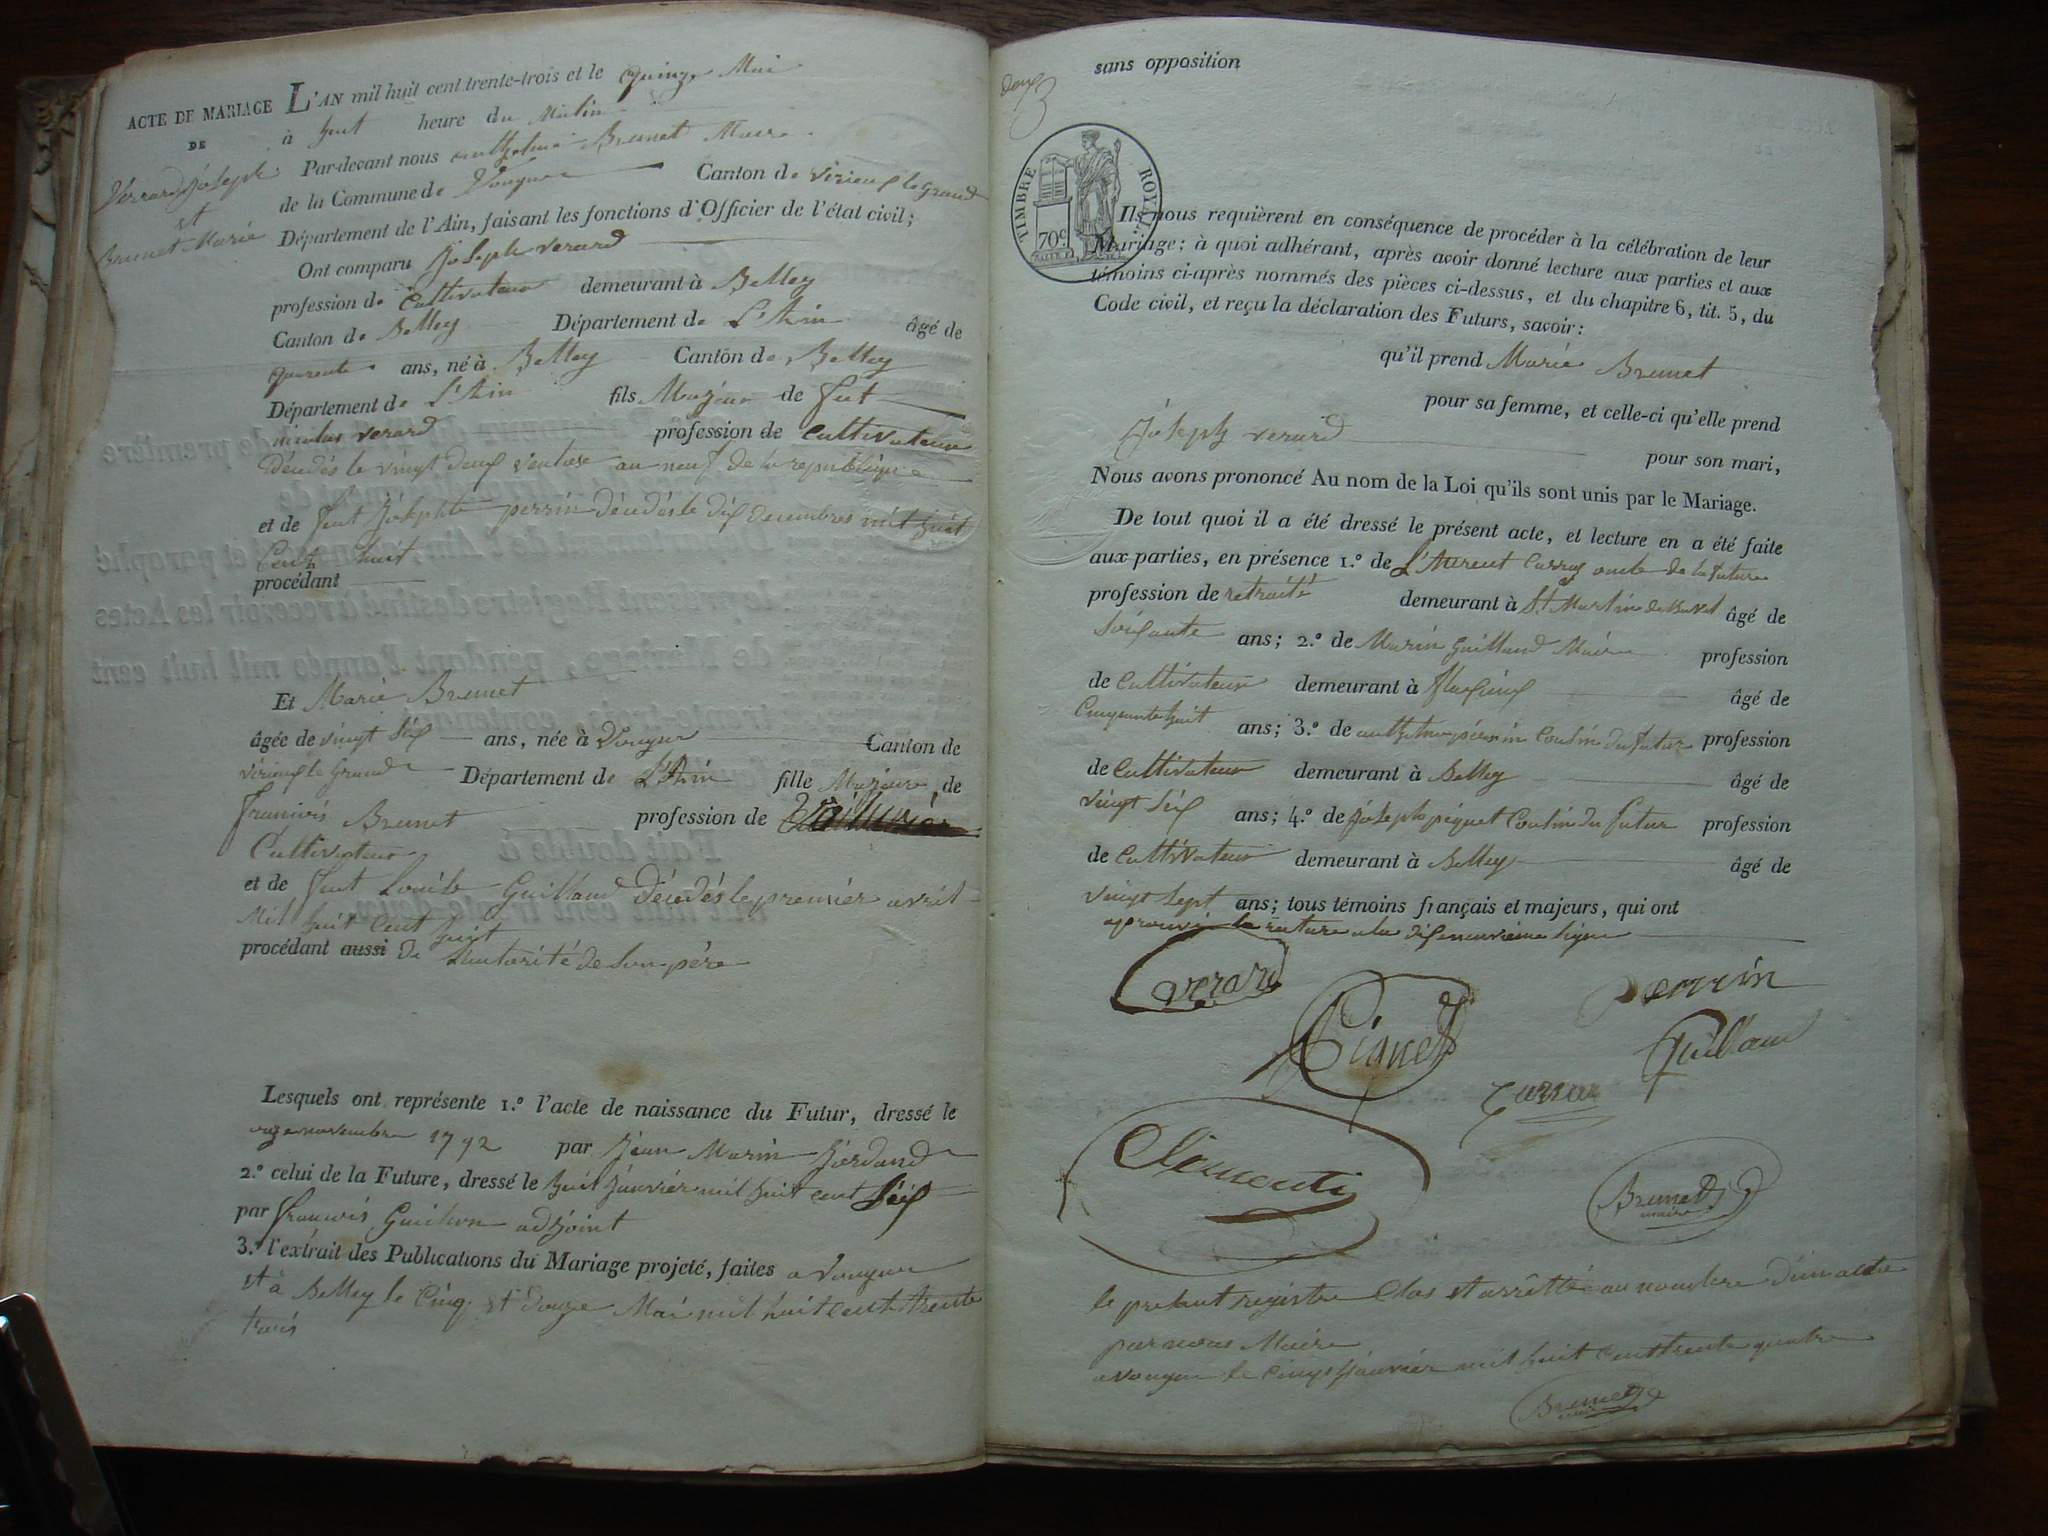 ACTE DE MARIAGE
DE
Verrard Joseph
et
Brunet Marie
L'AN mil huit cent trente-trois et le quinze Mai
à huit heure du Matin
Par-devant nous anthelme Brunet Maire
de la Commune de Vongne Canton de virieux le grand
Département de l'Ain, faisant les fonctions d'Officier de l'état civil;
Ont comparu Joseph verard
profession de Cultivateur demeurant à Belley
Canton de Belley Département de L'Ain âgé de
quarente ans, né à Belley Canton de Belley
Département de L'Ain fils Majeur de feut
nicolas verard profession de Cultivateur
décédés le vingt deux ventose an neuf de la republique
et de feut Josephte perrin décédés le dix decembres mil huit
Cent huit
procédant
Et Marie Brunet
âgée de vingt six ans, née à Vongne Canton de
virieux le Grand Département de L'Ain fille Majeure de
francois Brunet profession de
Cultivateur
et de feut Louise Guilland décédés le premier avril
Mil huit Cent huit
procédant aussi de L'autorité de son père
Lesquels ont représente 1.º l'acte de naissance du Futur, dressé le
onze novembre 1792 par Jean Marin Jordand
2.º celui de la Future, dressé le huit Janvier mil huit cent Six
par francois adjoint
3.º l'extrait des Publications du Mariage projeté, faites a Vongne
et à Belley le Cinq et douze Mai mil huit cent trente
trois
sans opposition
deux
TIMBRE ROYAL
70c
Ils nous requièrent en conséquence de procéder à la célébration de leur
Mariage; à quoi adhérant, après avoir donné lecture aux parties et aux
témoins ci-après nommés des pièces ci-dessus, et du chapitre 6, tit. 5, du
Code civil, et reçu la déclaration des Futurs, savoir:
qu'il prend Marie Brunet
pour sa femme, et celle-ci qu'elle prend
Joseph verard
pour son mari,
Nous avons prononcé Au nom de la Loi qu'ils sont unis par le Mariage.
De tout quoi il a été dressé le présent acte, et lecture en a été faite
aux parties, en présence 1.º de L'Aurent Carraz oncle de la future
profession de retraité demeurant à St Martin de Bavel âgé de
soixante ans; 2.º de Marin Guilland Maire profession
de Cultivateur demeurant à flaxieux âgé de
Cinquante huit ans; 3.º de anthelme perrin Cousin du futur profession
de Cultivateur demeurant à Belley âgé de
vingt six ans; 4.º de Joseph piquet Cousin du futur profession
de Cultivateur demeurant à Belley âgé de
vingt sept ans; tous témoins français et majeurs, qui ont
aprouvé la rature a la dixneuvieme ligne
verard
Perrin
Piquet
Guilland
Carraz
Clementi
Brunet
maire
le present registre Clos et arrêtté au nombre d'un actre
par nous Maire
a vongne le Cinq Janvier mil huit Cent trente quatre
Brunet
maire